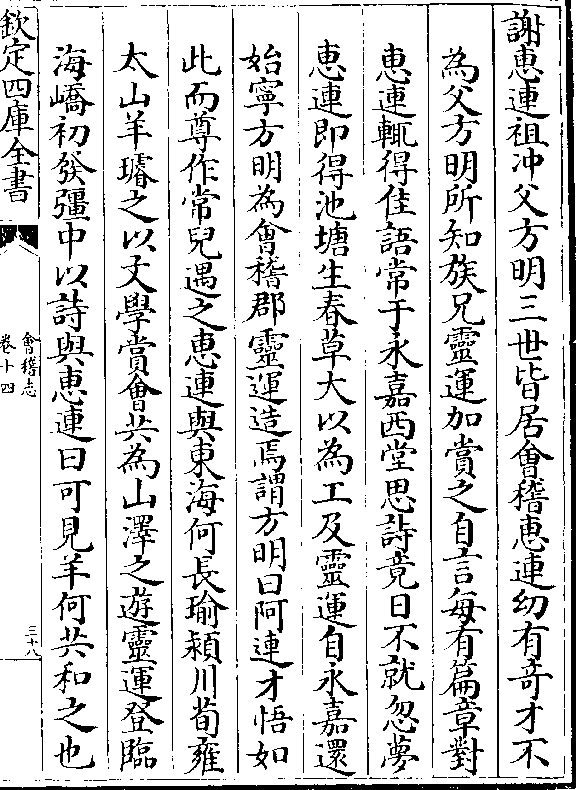 謝惠連祖冲父方明三世皆居會稽惠連幼有竒才不
為父方明所知族兄靈運加賞之自言每有篇章對
惠連輒得佳語常于永嘉西堂思詩竟日不就忽夢
惠連即得池塘生春草大以為工及靈運自永嘉還
始寧方明為會稽郡靈運造焉謂方明曰阿連才悟如
此而尊作常兒遇之惠連與東海何長瑜潁川荀雍
太山羊璿之以文學賞會共為山澤之遊靈運登臨
海嶠初發彊中以詩與惠連曰可見羊何共和之也
欽定四庫全書
會稽志
卷十四
三十八